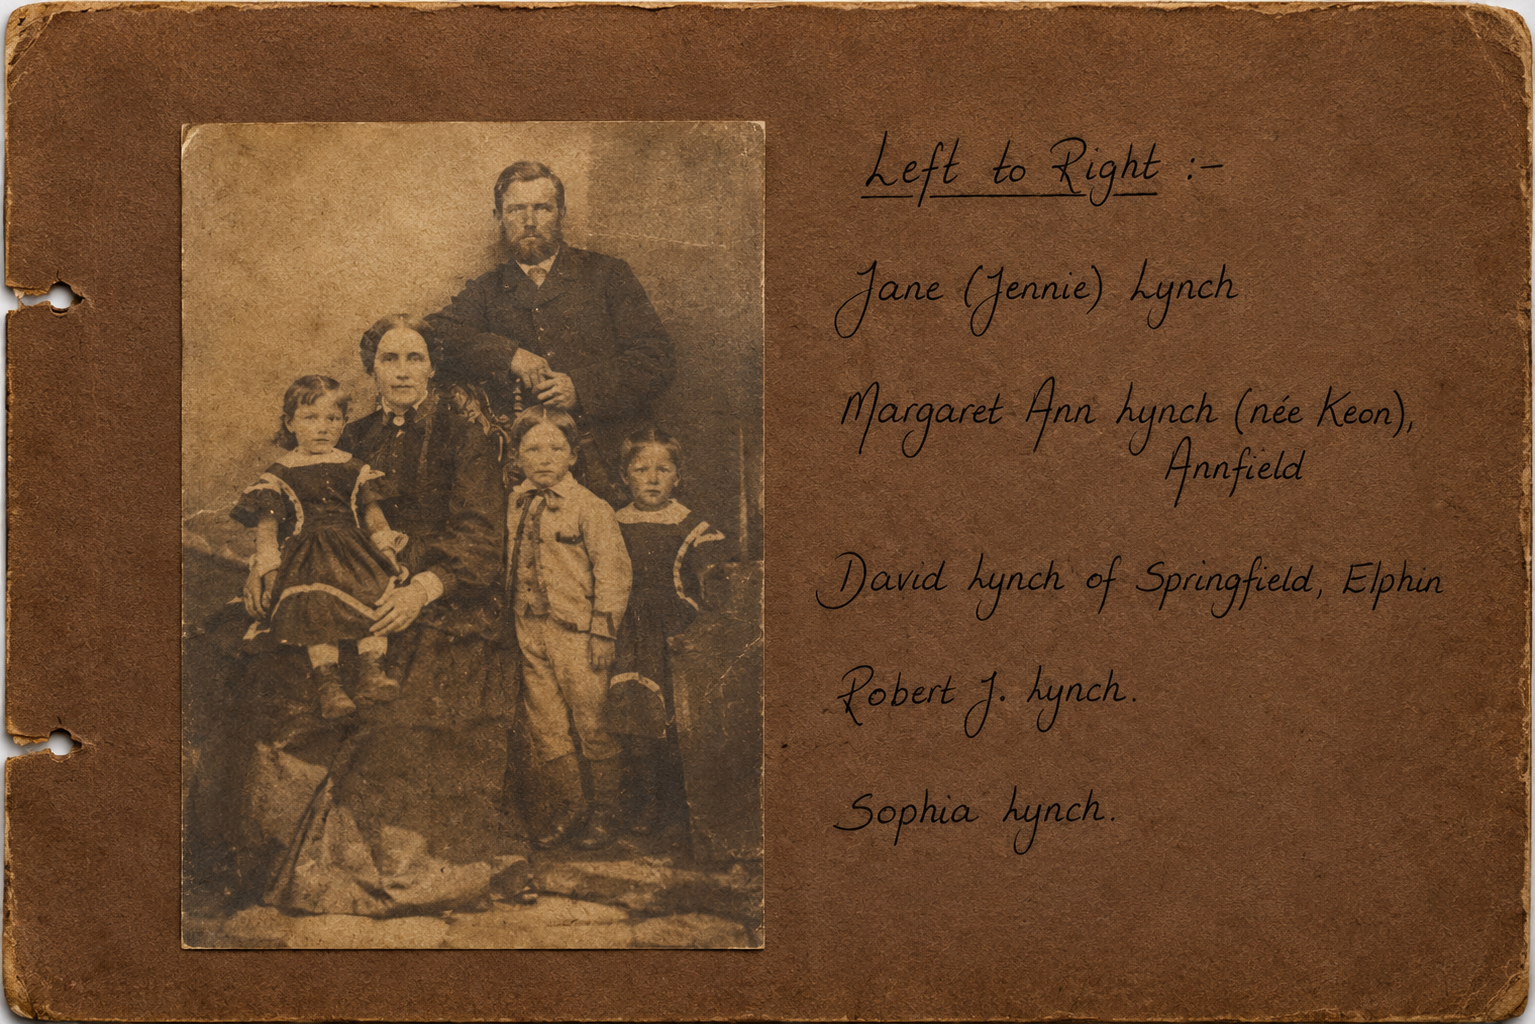 Left to Right :-
Jane (Jennie) Lynch
Margaret Ann Lynch (née Keon),
Annfield
David Lynch of Springfield, Elphin
Robert J. Lynch.
Sophia Lynch.